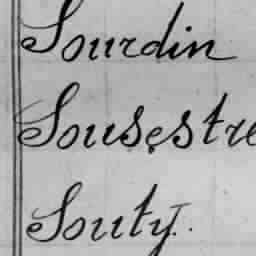 Sourdin
Sousestre
Souty.